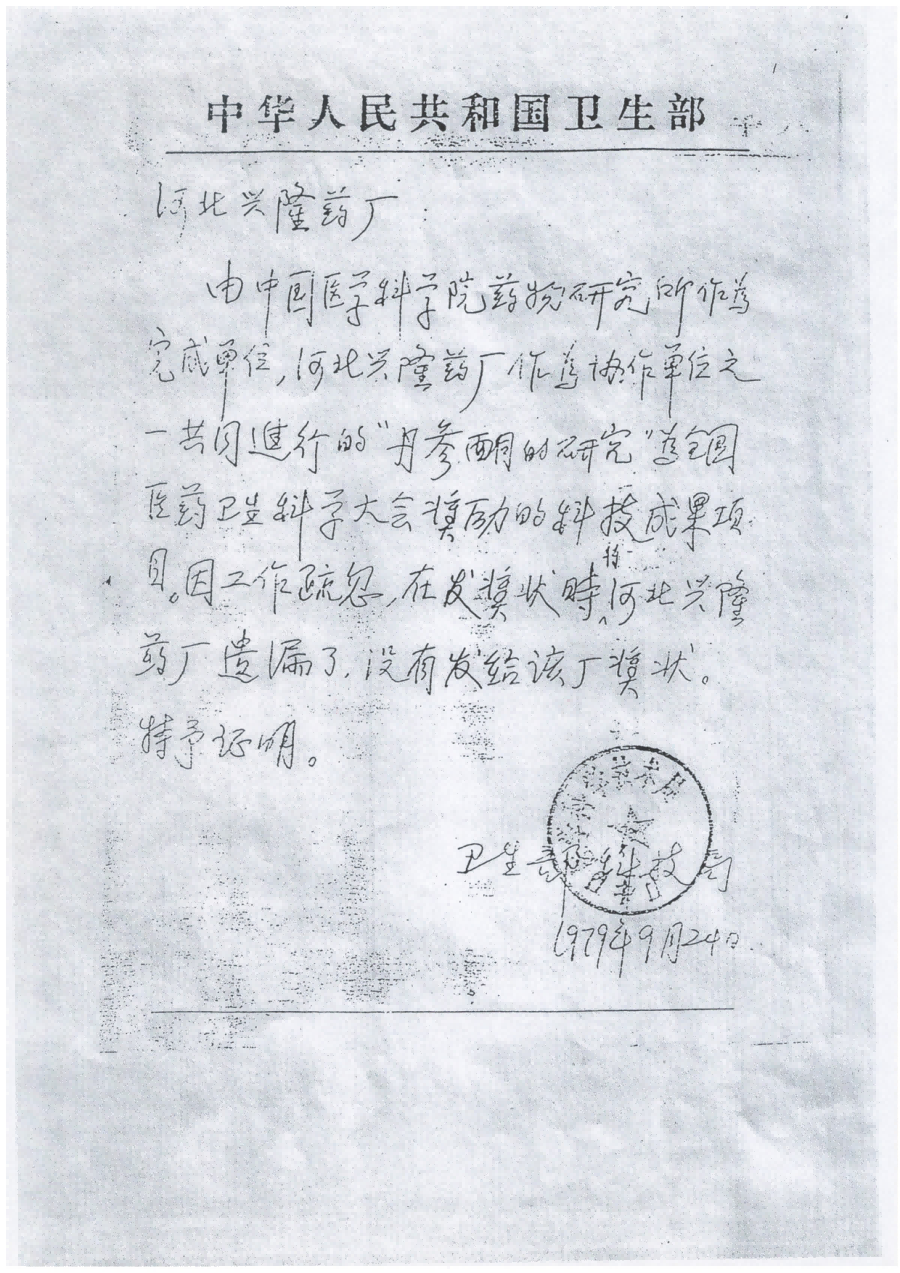 中华人民共和国卫生部
河北兴隆药厂:
由中国医学科学院药物研究所作为
完成单位,河北兴隆药厂作为协作单位之
一共同进行的“丹参酮的研究”为全国
医药卫生科学大会奖励的科技成果项
目。因工作疏忽,在发奖状时,将河北兴隆
药厂遗漏了,没有发给该厂奖状。
特予证明。
科学技术局
卫生部科技局
1979年9月24日